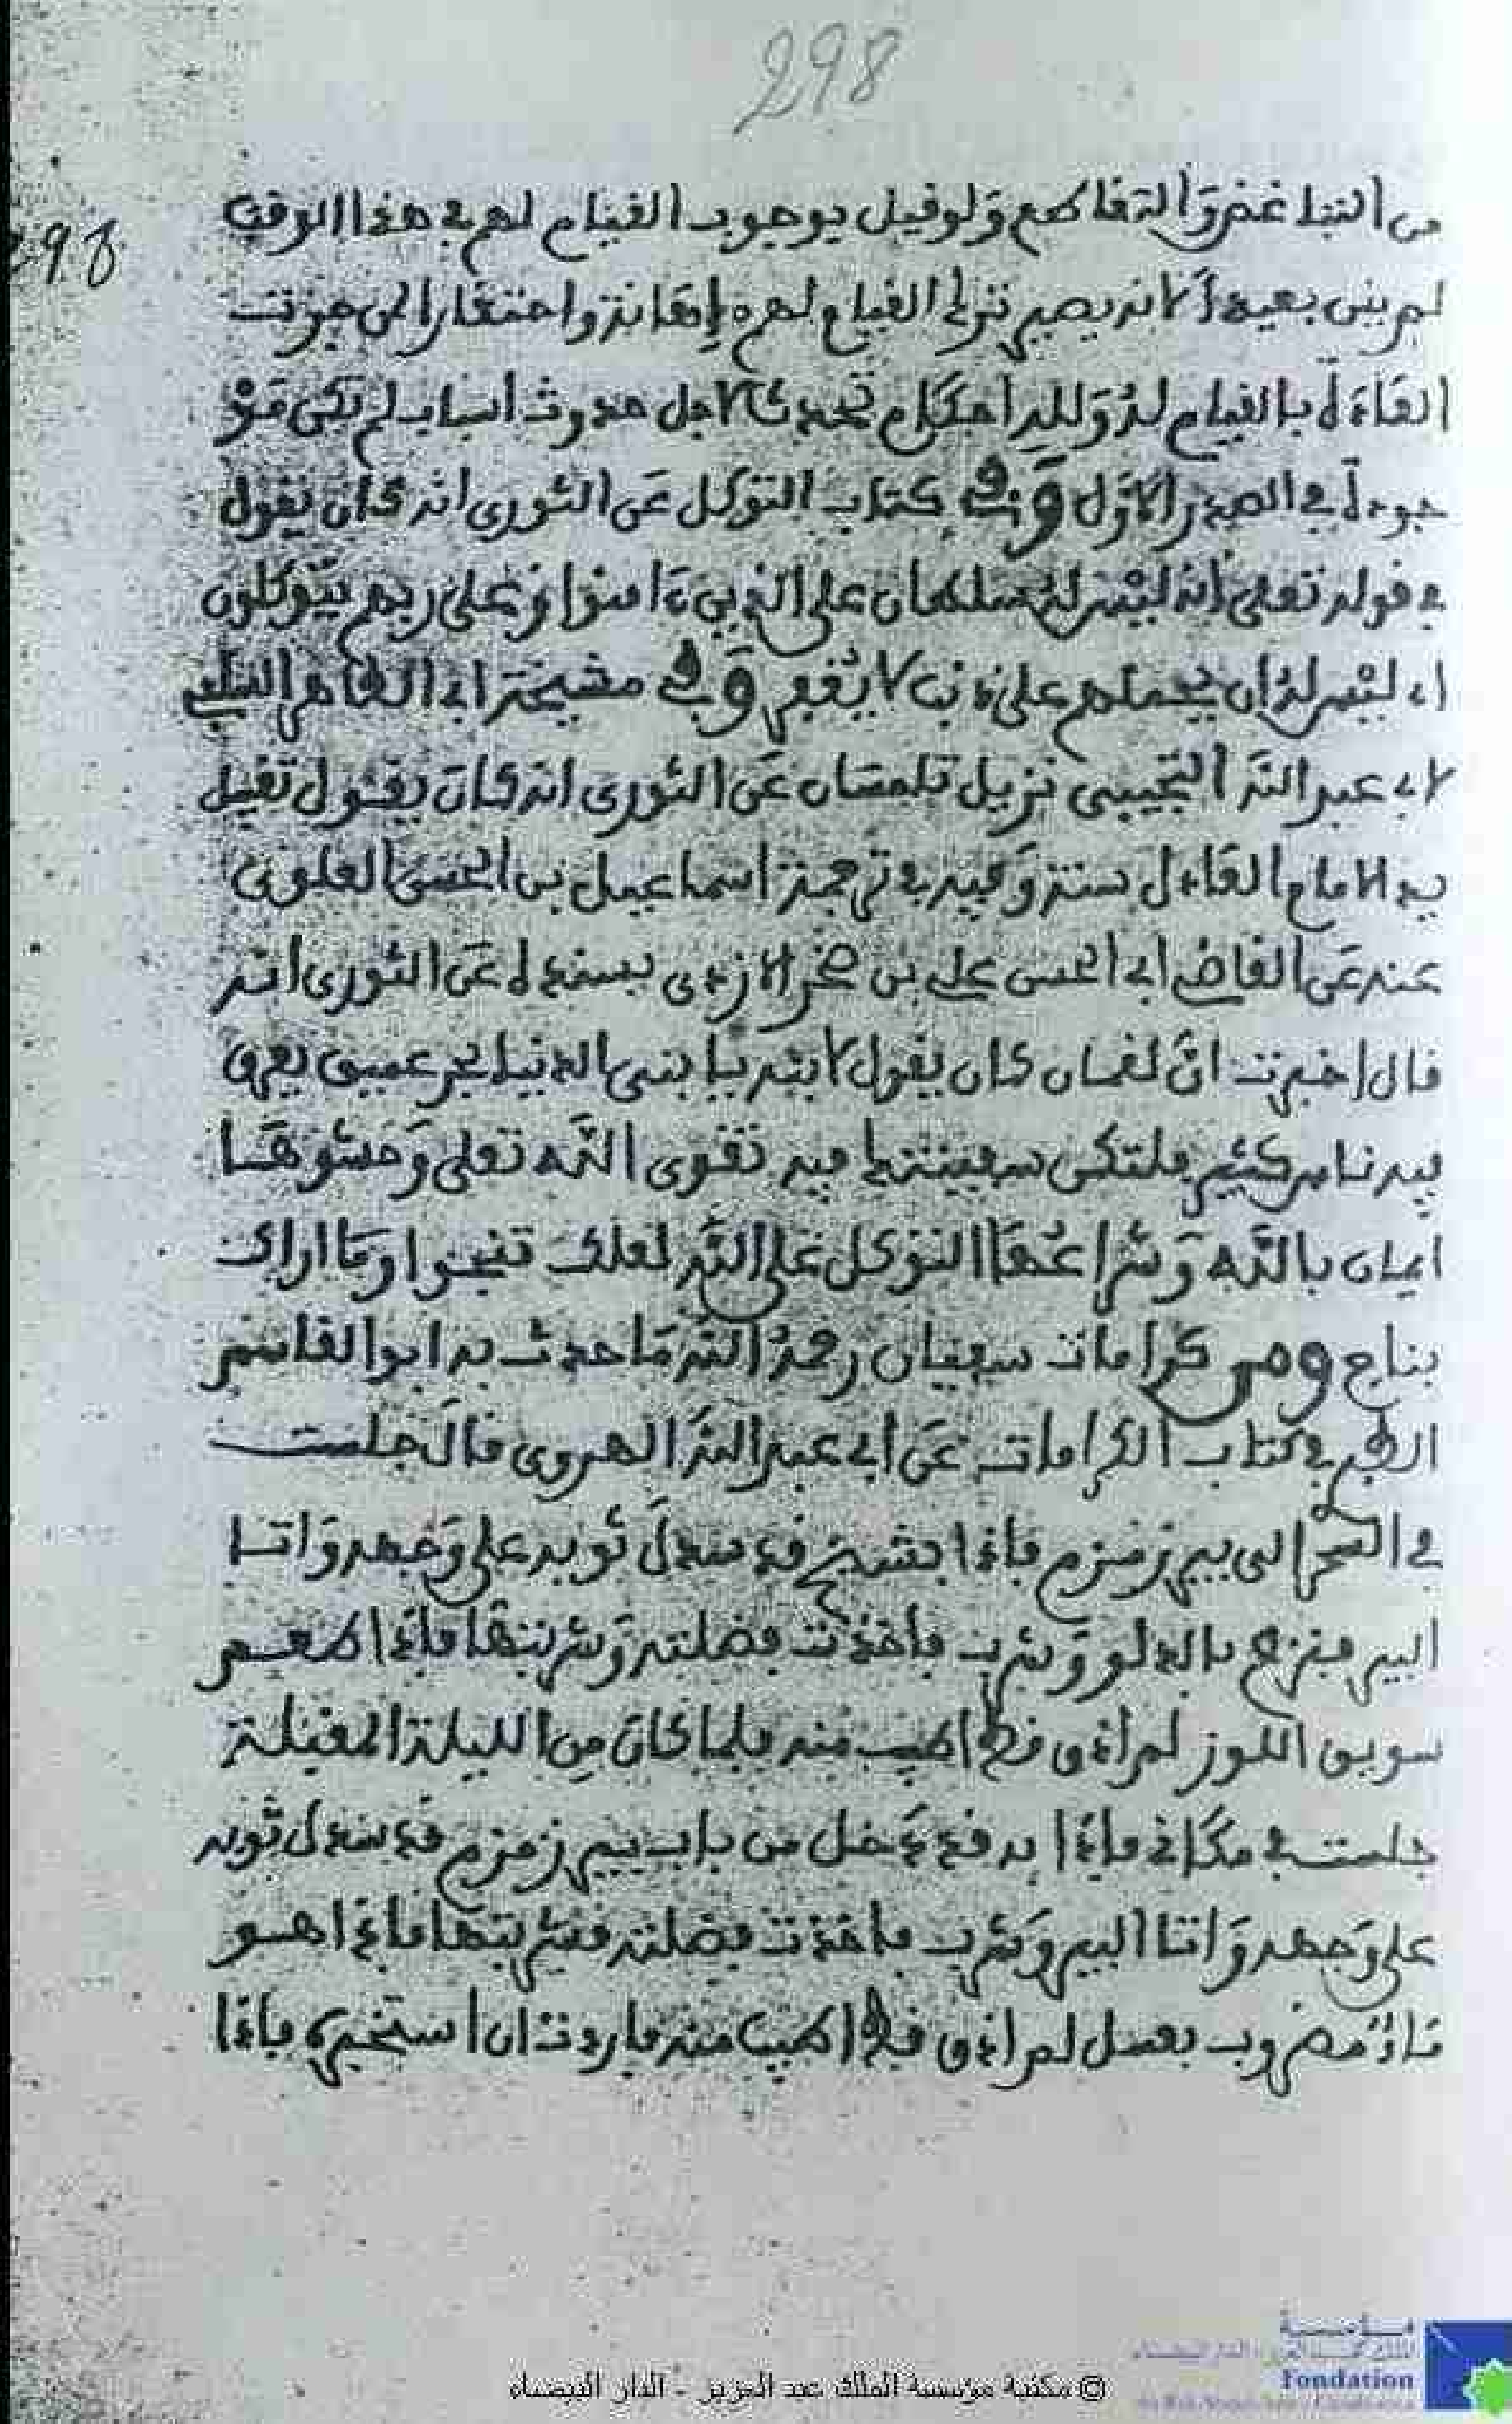 298
298
من التباغض والتقاطع ولو قيل بوجوب القيام لهم في هذا الوقت
لم يكن بعيدا لانه يصير ترك القيام لهم اهانة واحتقارا لمن جرت
العادة بالقيام له ولله احكام تحدث لاجل حدوث اسباب لم تكن مو
جودة في الصدر الاول وفي كتاب التوكل عن الثوري انه كان يقول
في قوله تعلى انه ليس له سلطان على الذين ءامنوا وعلى ربهم يتوكلون
اي ليس له ان يحملهم على ذنب لا يغفر وفي مشيخة ابي الطاهر السلفي
لابي عبد الله التجيبي نزيل تلمسان عن الثوري انه كان يقول تقبل
يد الامام العادل سنة وفيه في ترجمة اسماعيل بن الحسن العلوي
عنه عن القاضي ابي الحسن علي بن صخر الازدي بسنده عن الثوري انه
قال اخبرت ان لقمان كان يقول لابنه يا بني الدنيا بحر عميق يغرق
فيه ناس كثير فلتكن سفينتك فيه تقوى الله تعلى وحشوها
ايمان بالله وشراعها التوكل على الله لعلك تنجوا وما اراك
بناج ومن كرامات سفيان رحمه الله ما حدث به ابو القاسم
الطبري في كتاب الكرامات عن ابي عبد الله الهروي قال جلست
في السحر الى بير زمزم فاذا بشيخ قد سدل ثوبه على وجهه واتا
البير فنزع بالدلو وشرب فاخذت فضلته وشربتها فاذا طعم
سويق اللوز لم اذق قط اطيب منه فلما كان من الليلة المقبلة
جلست في مكاني فاذا به قد دخل من باب بير زمزم قد سدل ثوبه
على وجهه واتا البير وشرب فاخذت فضلته فشربتها فاذا هو
ماء مضروب بعسل لم اذق قط اطيب منه فاردت ان استخبره فاذا
© مكتبة مؤسسة الملك عبد العزيز - الدار البيضاء
Fondation